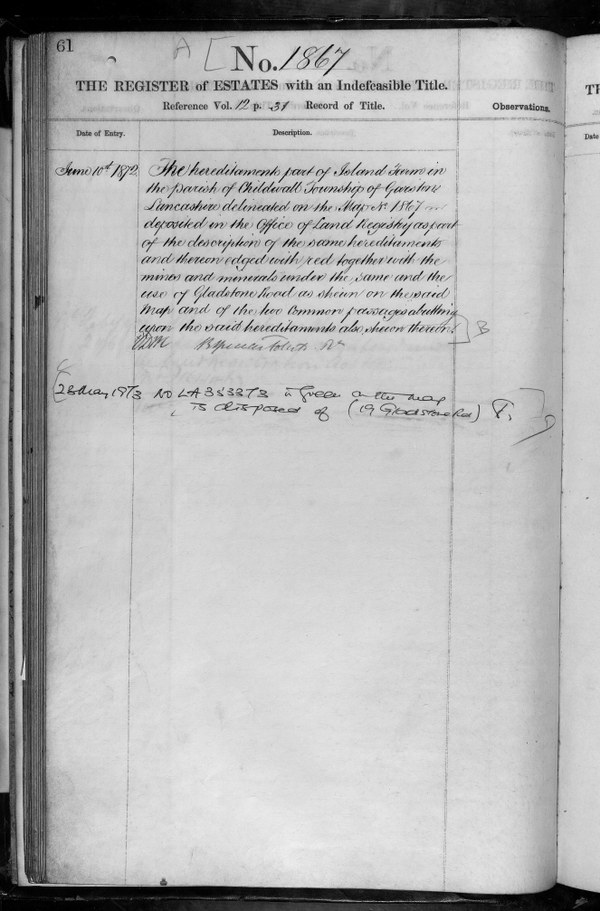 61
A [
No. 1867
THE REGISTER of ESTATES with an Indefeasible Title.
Reference Vol. 12 p. 31 Record of Title.
Observations.
Date of Entry.
Description.
June 10th 1872
The hereditaments part of Island Farm in
the Parish of Childwall Township of Garston
Lancashire delineated on the Map No. 1867
deposited in the Office of Land Registry as part
of the description of the same hereditaments
and thereon edged with red together with the
mines and minerals under the same and the
use of Gladstone Road as shewn on the said
Map and of the two Common passages abutting
upon the said hereditaments also shewn thereon.
] B
28 May 1973 NO LA 333373 in green on the map
is disposed of (19 Gladstone Rd)
TH
Date